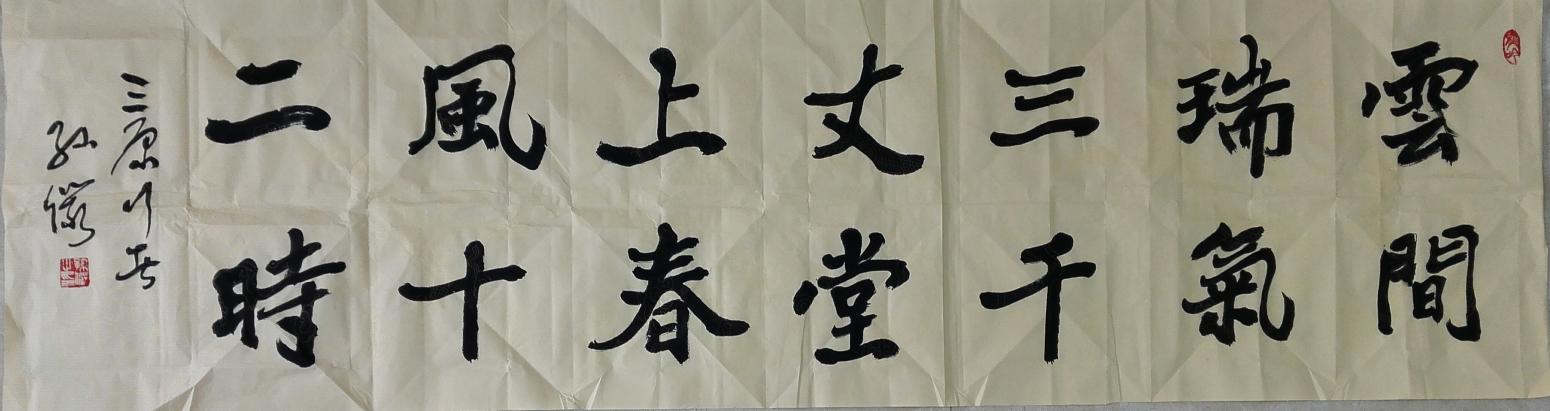 雲間
瑞氣
三千
丈堂
上春
風十
二時
三原